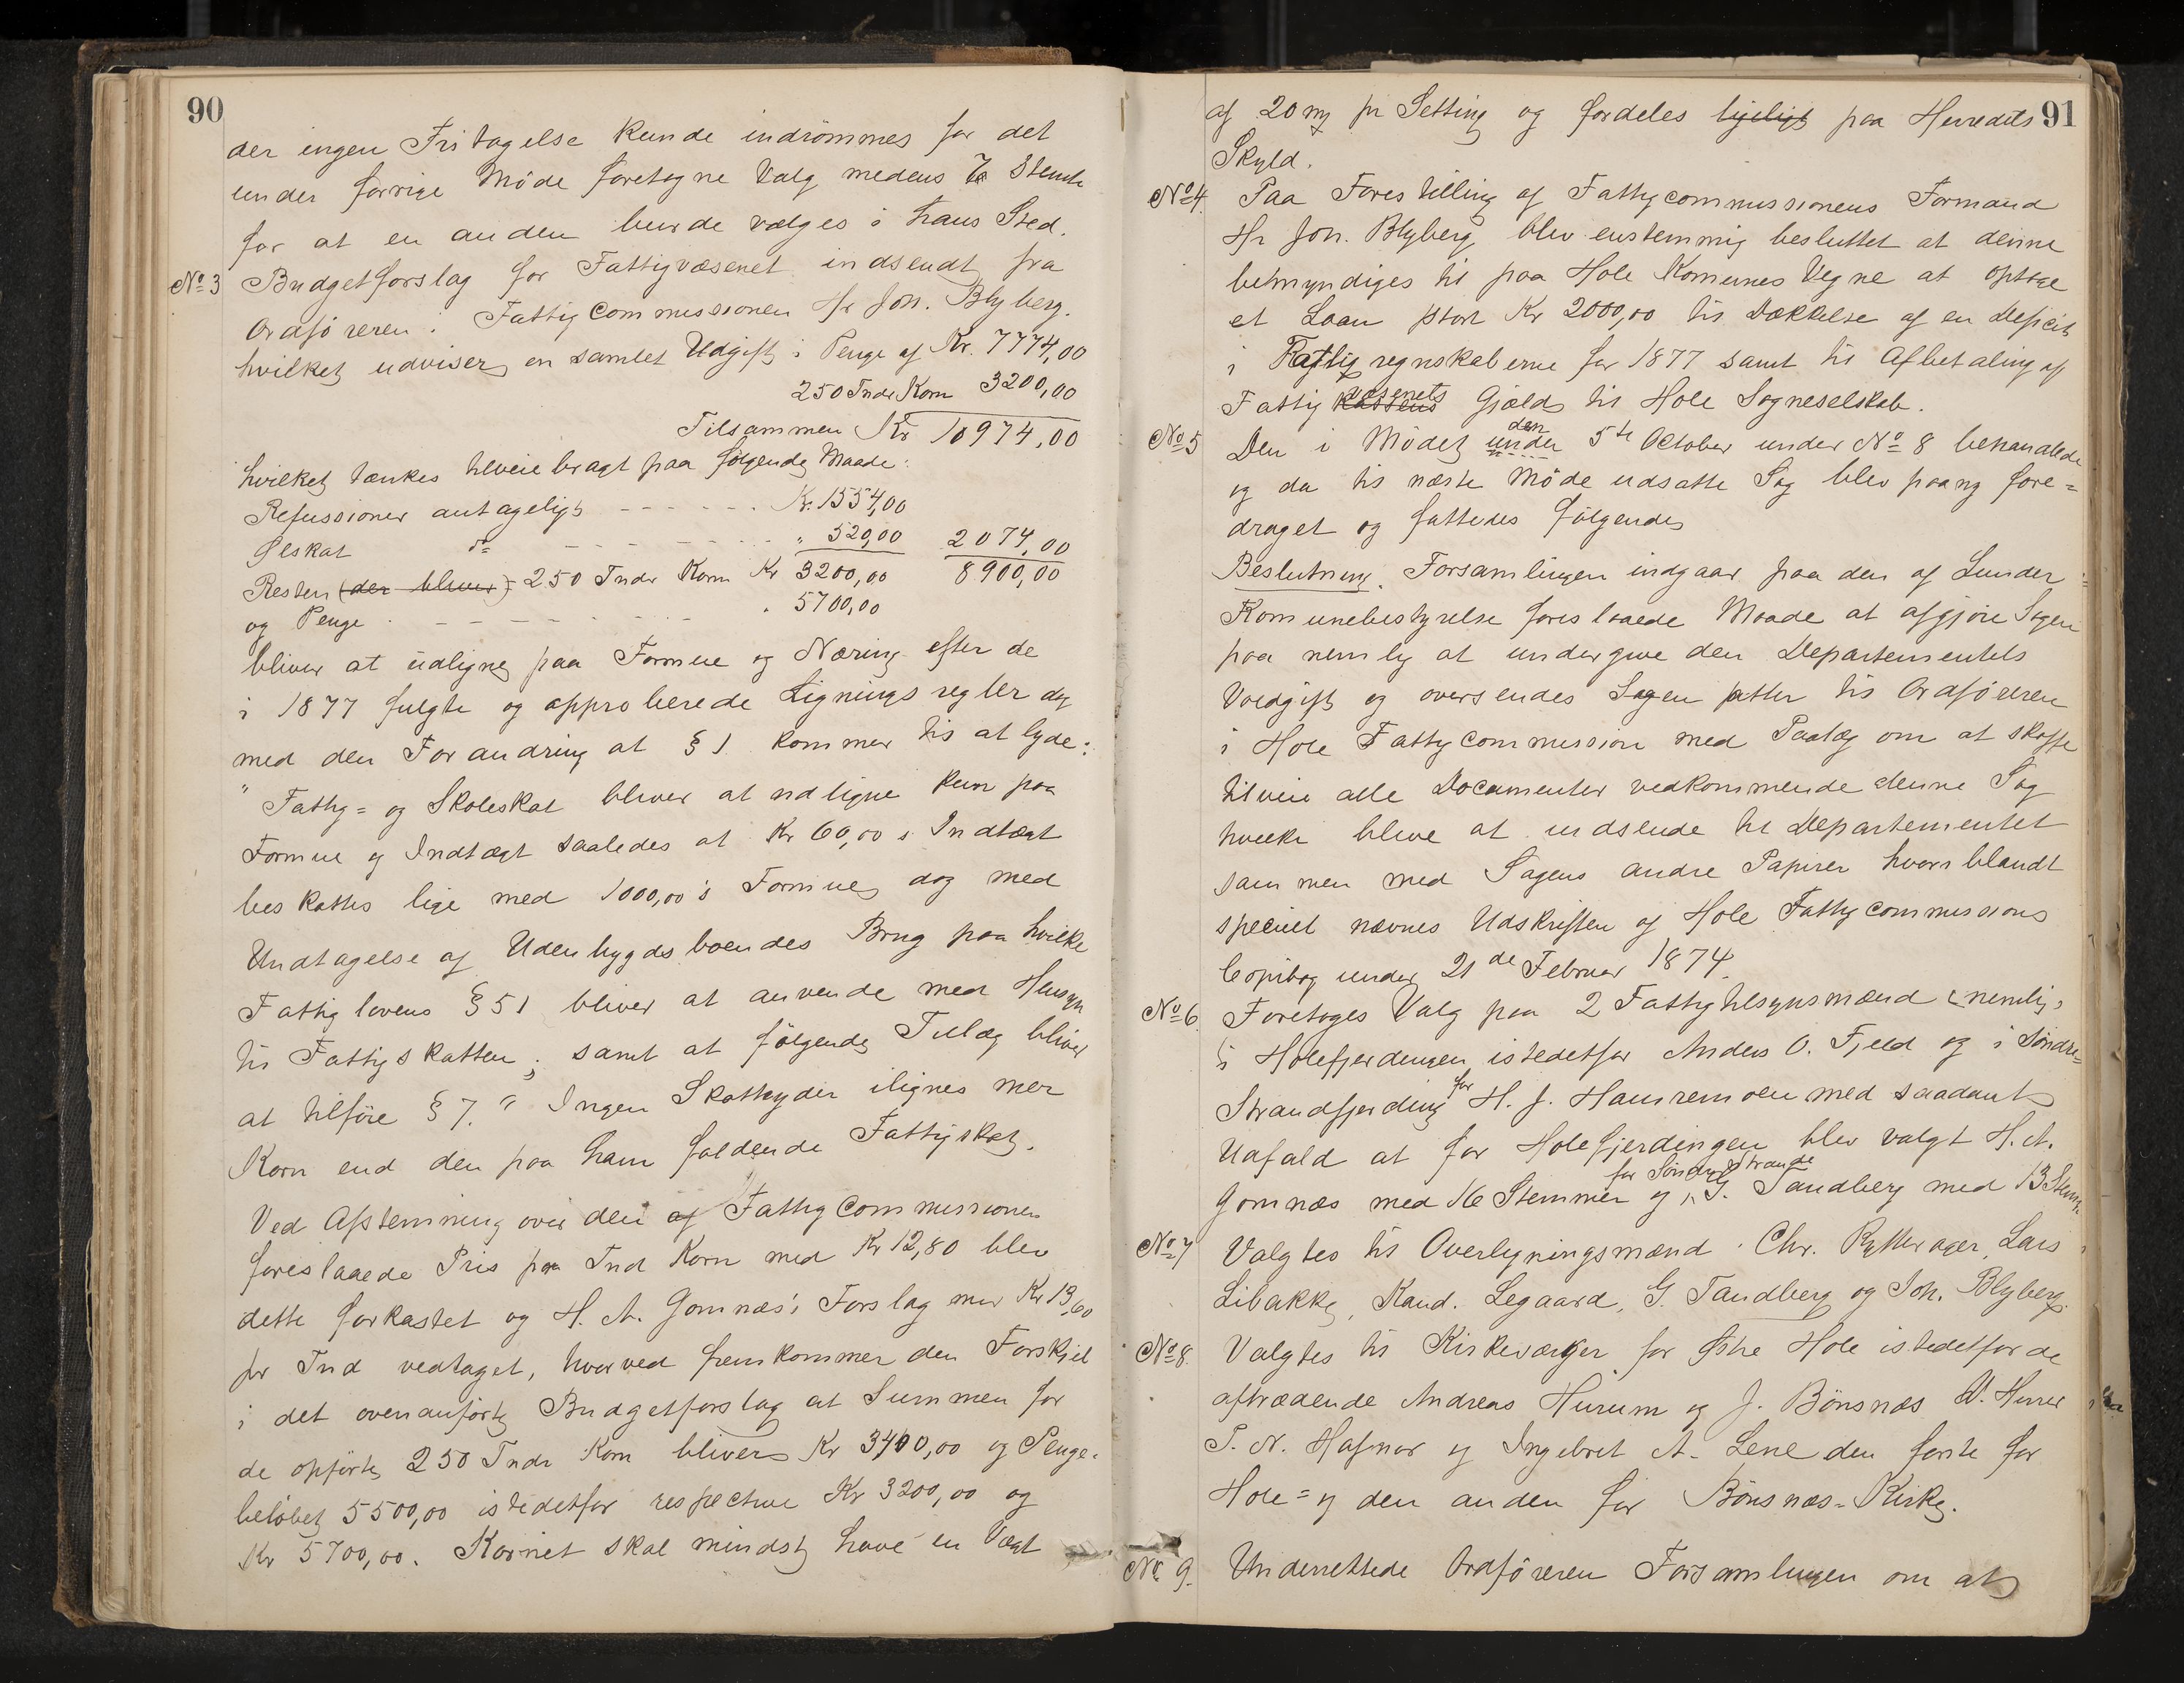 90
der ingen Fritagelse kunde indrömmes for det
under forrige Möde foretagne Valg medens 7 Stemte
for at en anden burde vælges i hans Sted.
No 3 Budgetforslag for Fattigvæsenet indsendt fra
Ordföreren i Fattigcommissionen Hr Joh. Blyberg.
hvilket udviser en samlet Udgift i Penge af Kr. 7774,00
250 Tndr Korn 3200,00
Tilsammen Kr 10974,00
hvilket tænkes tilveiebragt paa følgende Maade:
Refussioner antageligt - - - - - - Kr. 1554,00
Ølskat do - - - - - - - " 520,00 2074,00
Resten (der bliver) = 250 Tndr Korn Kr 3200,00 8900,00
og Penge - - - - - - - - - " 5700,00
bliver at udligne paa Formue og Næring efter de
i 1877 fulgte og approberede Ligningsregler dog
med den Forandring at § 1 kommer til at lyde:
" Fattig= og Skoleskat bliver at udligne kun paa
Formue og Indtægt saaledes at Kr 60,00 s Indtægt
beskattes lige med 1000,00 s Formue, dog med
Undtagelse af Udenbygdsboendes Brug paa hvilke
Fattiglovens § 51 bliver at anvende med Hensyn
til Fattigskatten; samt at følgende Tillæg bliver
at tilföre § 7. " Ingen Skatteyder ilignes mer
Korn end den paa ham faldende Fattigskat.
Ved Afstemning over den af Fattigcommissionen
foreslaaede Pris paa Tnd Korn med Kr 12,80 blev
dette forkastet og H. A. Gomnæs's Forslag mer Kr 13,60
pr Tnd vedtaget, hvorved fremkommer den Forskjel
i det ovenanførte Budgetforslag at Summen for
de opförte 250 Tndr Korn bliver Kr 3400,00 og Penge-
belöbet 5500,00 istedetfor respective Kr 3200,00 og
Kr 5700,00. Kornet skal mindst have en Vægt
91
af 20 mg pr Setting og fordeles ligeligt paa Herredets
Skyld.
No 4. Paa Forestilling af Fattigcommissionens Formand
Hr Joh. Blyberg blev enstemmig besluttet at denne
bemyndiges til paa Hole Komunes Vegne at optage
et Laan stort Kr 2000,00 til Dækkelse af en Deficit
i Fattigregnskaberne for 1877 samt til Afbetaling af
Fattig kassens væsenets Gjæld til Hole Sogneselskab.
No 5 Den i Mödet under den 5te October under No 8 behandlede
og da til næste Möde udsatte Sag blev paany fore=
draget og fattedes fölgende
Beslutning. Forsamlingen indgaar paa den af Lunder
Komunebestyrelse foreslaaede Maade at afgjøre Sagen
paa nemlig at undergive den Departementets
Voldgift og oversendes Sagen atter til Ordföreren
i Hole Fattigcommission med Paalæg om at skaffe
tilveie alle Documenter vedkommende denne Sag
hvilke blive at indsende til Departementet
sammen med Sagens andre Papirer hvoriblandt
specielt nævnes Udskriften af Hole Fattigcommissions
Copibog under 21de Februar 1874.
No 6. Foretoges Valg paa 2 Fattigtilsynsmænd nemlig
i Holefjerdingen istedetfor Anders O. Fjeld og i Söndre=
Strandfjerding for H. J. Hanremoen med saadant
Udfald at for Holefjerdingen blev valgt H. A.
Gomnæs med 16 Stemmer og for Söndre Strands G. Tandberg med 13 Stem.
No 7 Valgtes til Overligningsmænd: Chr. Rytterager, Lars
Libakke, Kand. Legaard, G. Tandberg og Joh. Blyberg.
No 8. Valgtes til Kirkeværger for Østre Hole istedetfor de
aftrædende Andreas Hurum og J. Bönsnæs D. Herrer
P. N. Hafnor og Ingebret A. Lene den förste for
Hole= og den anden for Bönsnæs-Kirke.
No. 9. Underrettede Ordföreren Forsamlingen om at